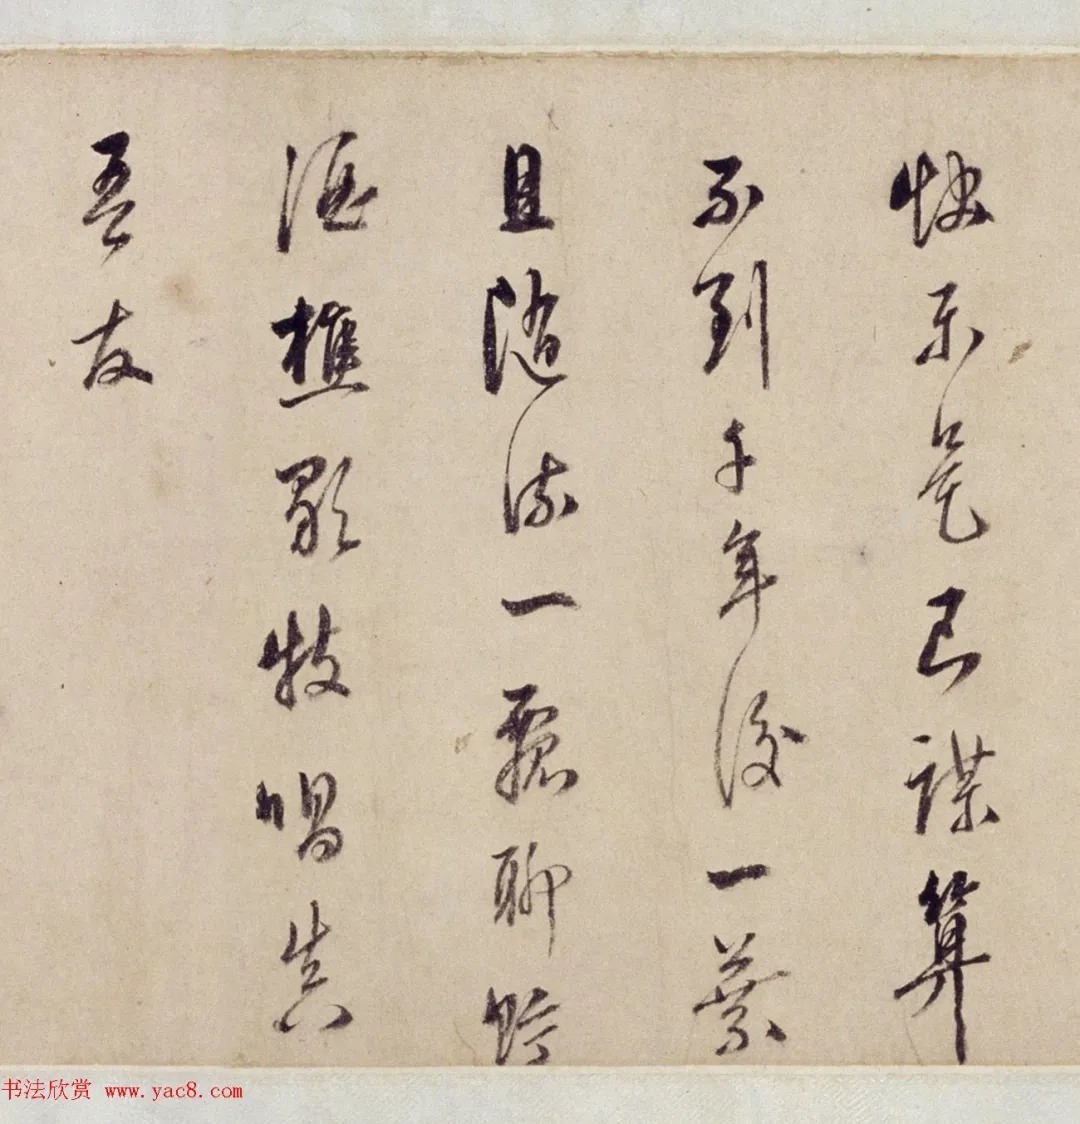 快樂是已謀算
不到千年後一葉
且隨流一瓢聊賒
酒樵歌牧唱真
吾友
书法欣赏 www.yac8.com